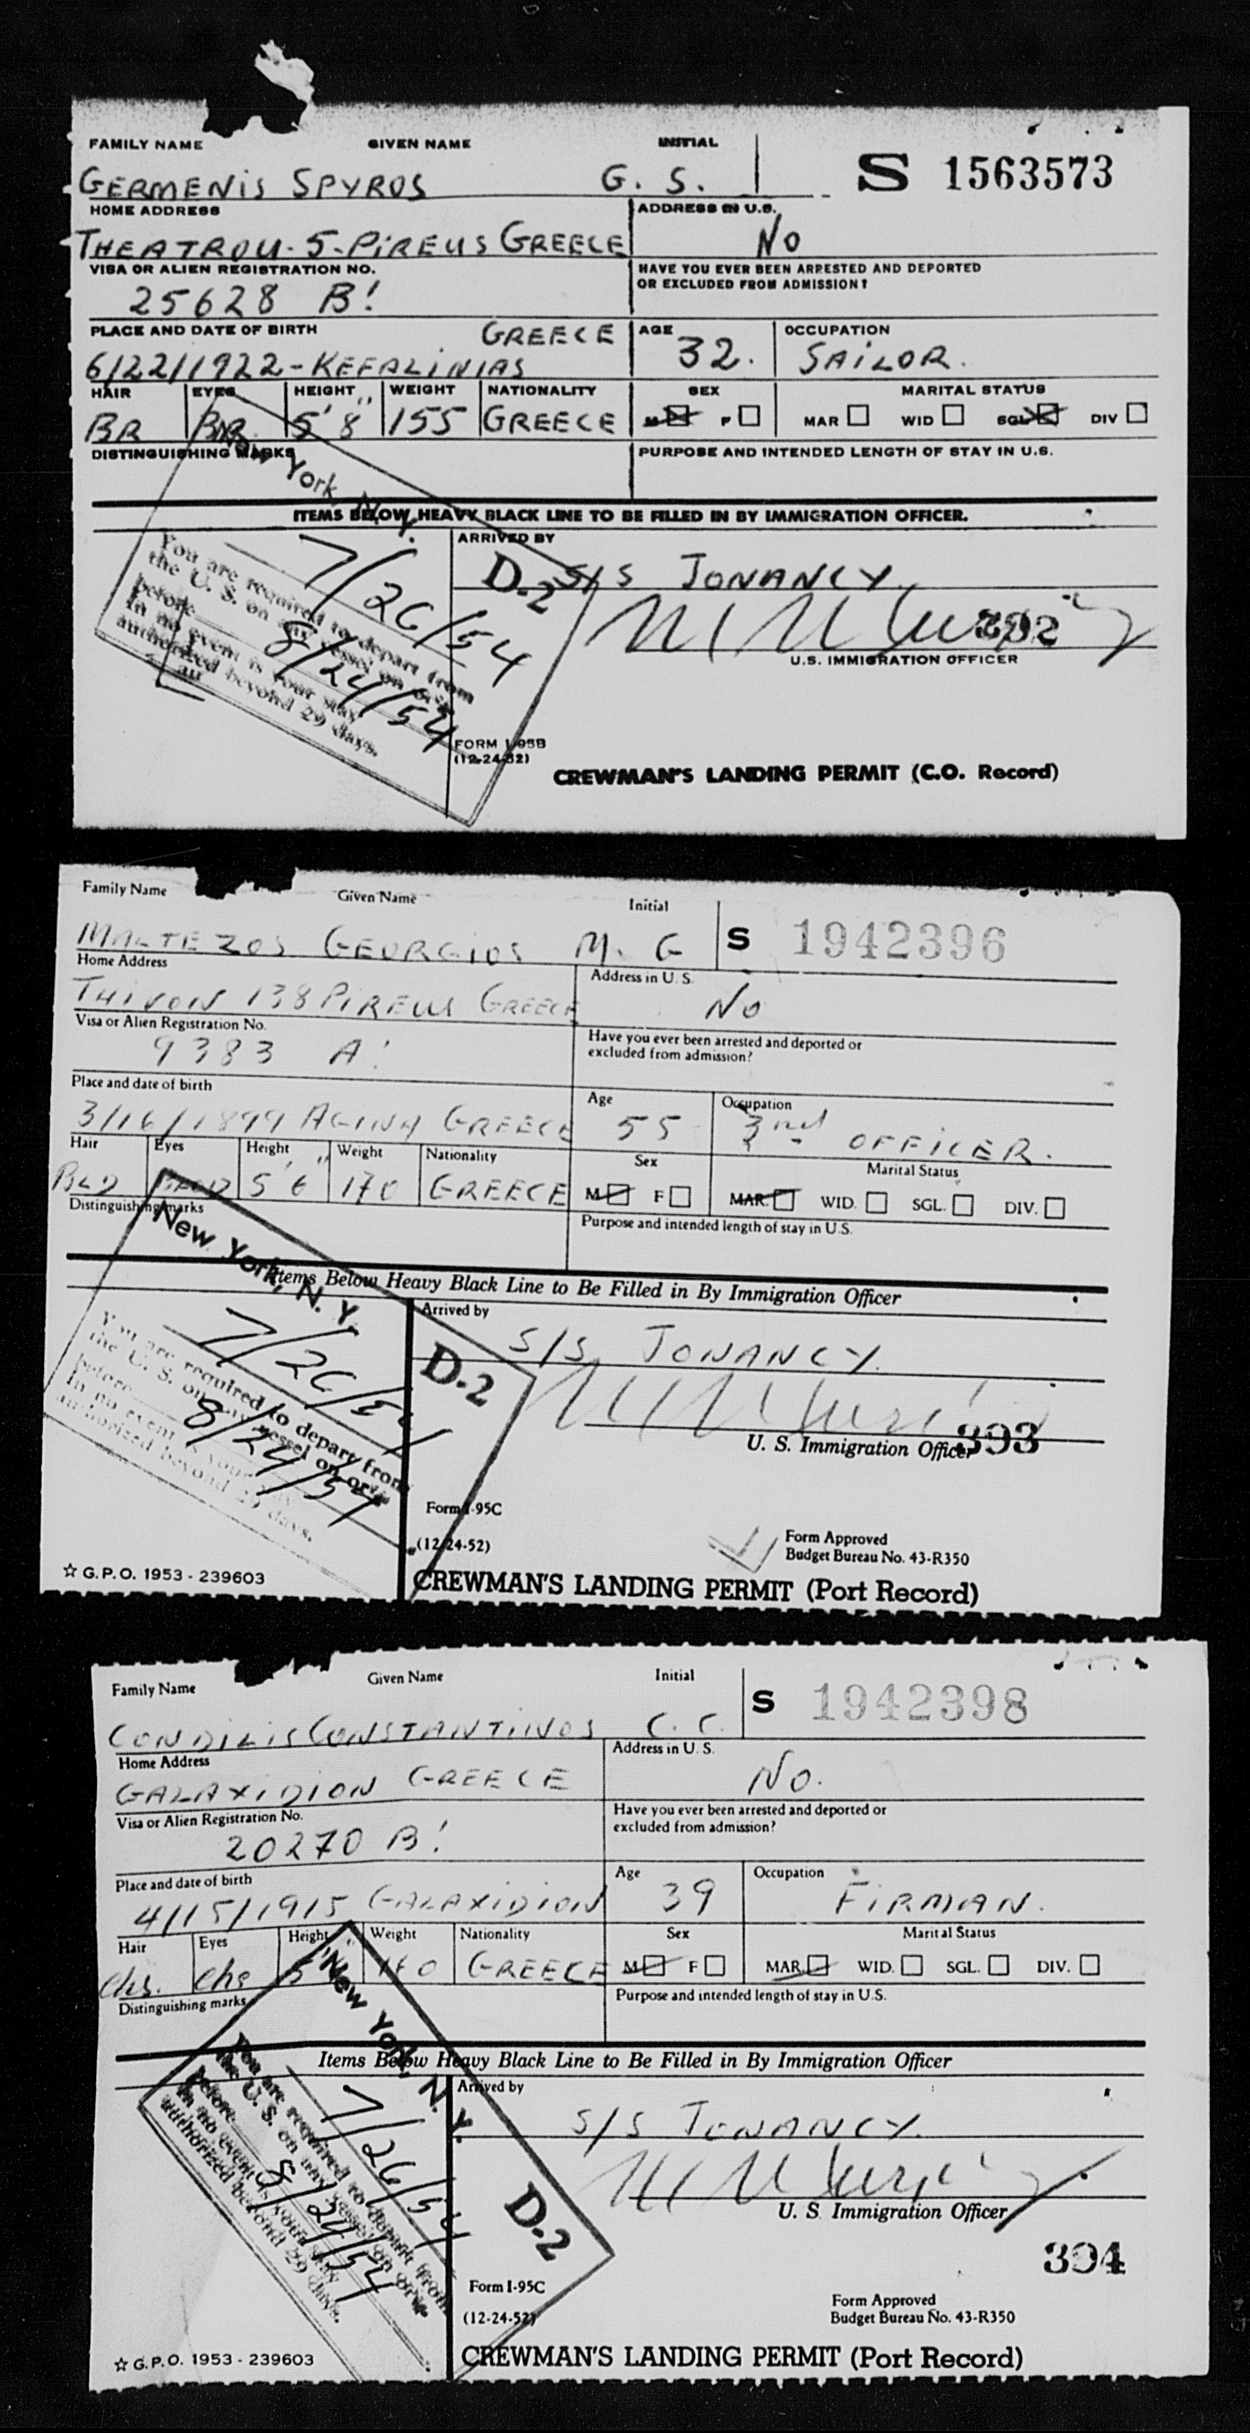 FAMILY NAME GIVEN NAME INITIAL
S 1563573
GERMENIS SPYROS G. S.
HOME ADDRESS ADDRESS IN U.S.
THEATROU-5-PIREUS GREECE No
VISA OR ALIEN REGISTRATION NO. HAVE YOU EVER BEEN ARRESTED AND DEPORTED
OR EXCLUDED FROM ADMISSION?
25628 B!
PLACE AND DATE OF BIRTH GREECE AGE OCCUPATION
6/22/1922-KEFALINIAS 32. SAILOR.
HAIR EYES HEIGHT WEIGHT NATIONALITY SEX MARITAL STATUS
BR BR 5'8" 155 GREECE M F MAR WID SGL DIV
DISTINGUISHING MARKS PURPOSE AND INTENDED LENGTH OF STAY IN U.S.
New York, N. Y.
ITEMS BELOW HEAVY BLACK LINE TO BE FILLED IN BY IMMIGRATION OFFICER.
ARRIVED BY
7/26/54 D-2 S/S JONANCY
You are required to depart from
the U. S. on any vessel on or
before 8/24/54
In no event is your stay
authorized beyond 29 days.
392
U.S. IMMIGRATION OFFICER
FORM I-95B
(12-24-52)
CREWMAN'S LANDING PERMIT (C.O. Record)
Family Name Given Name Initial
MALTEZOS GEORGIOS M. G S 1942396
Home Address Address in U. S.
THIVON 138 PIREUS GREECE No
Visa or Alien Registration No. Have you ever been arrested and deported or
excluded from admission?
9383 A!
Place and date of birth Age Occupation
3/16/1899 AGINA GREECE 55 3nd OFFICER.
Hair Eyes Height Weight Nationality Sex Marital Status
BLD 5'6" 170 GREECE M F MAR. WID. SGL. DIV.
Distinguishing marks Purpose and intended length of stay in U.S.
New York, N. Y.
Items Below Heavy Black Line to Be Filled in By Immigration Officer
Arrived by
7/26/54 D-2 S/S JONANCY.
You are required to depart from
the U. S. on any vessel on or
before 8/24/54
In no event is your stay
authorized beyond 29 days.
393
U. S. Immigration Officer
Form I-95C
(12-24-52)
Form Approved
Budget Bureau No. 43-R350
☆ G.P.O. 1953 - 239603
CREWMAN'S LANDING PERMIT (Port Record)
Family Name Given Name Initial
S 1942398
CONDILIS CONSTANTINOS C. C.
Home Address Address in U. S.
GALAXIDION GREECE No.
Visa or Alien Registration No. Have you ever been arrested and deported or
excluded from admission?
20270 B!
Place and date of birth Age Occupation
4/15/1915 GALAXIDION 39 FIRMAN.
Hair Eyes Height Weight Nationality Sex Marital Status
Chs. Chs 5' 140 GREECE M F MAR. WID. SGL. DIV.
Distinguishing marks Purpose and intended length of stay in U.S.
New York, N. Y.
Items Below Heavy Black Line to Be Filled in By Immigration Officer
Arrived by
7/26/54 S/S JONANCY.
You are required to depart from
the U. S. on any vessel on or
before 8/24/54
In no event is your stay
authorized beyond 29 days.
D-2
U. S. Immigration Officer
394
Form I-95C
(12-24-52)
Form Approved
Budget Bureau No. 43-R350
☆ G.P.O. 1953 - 239603
CREWMAN'S LANDING PERMIT (Port Record)